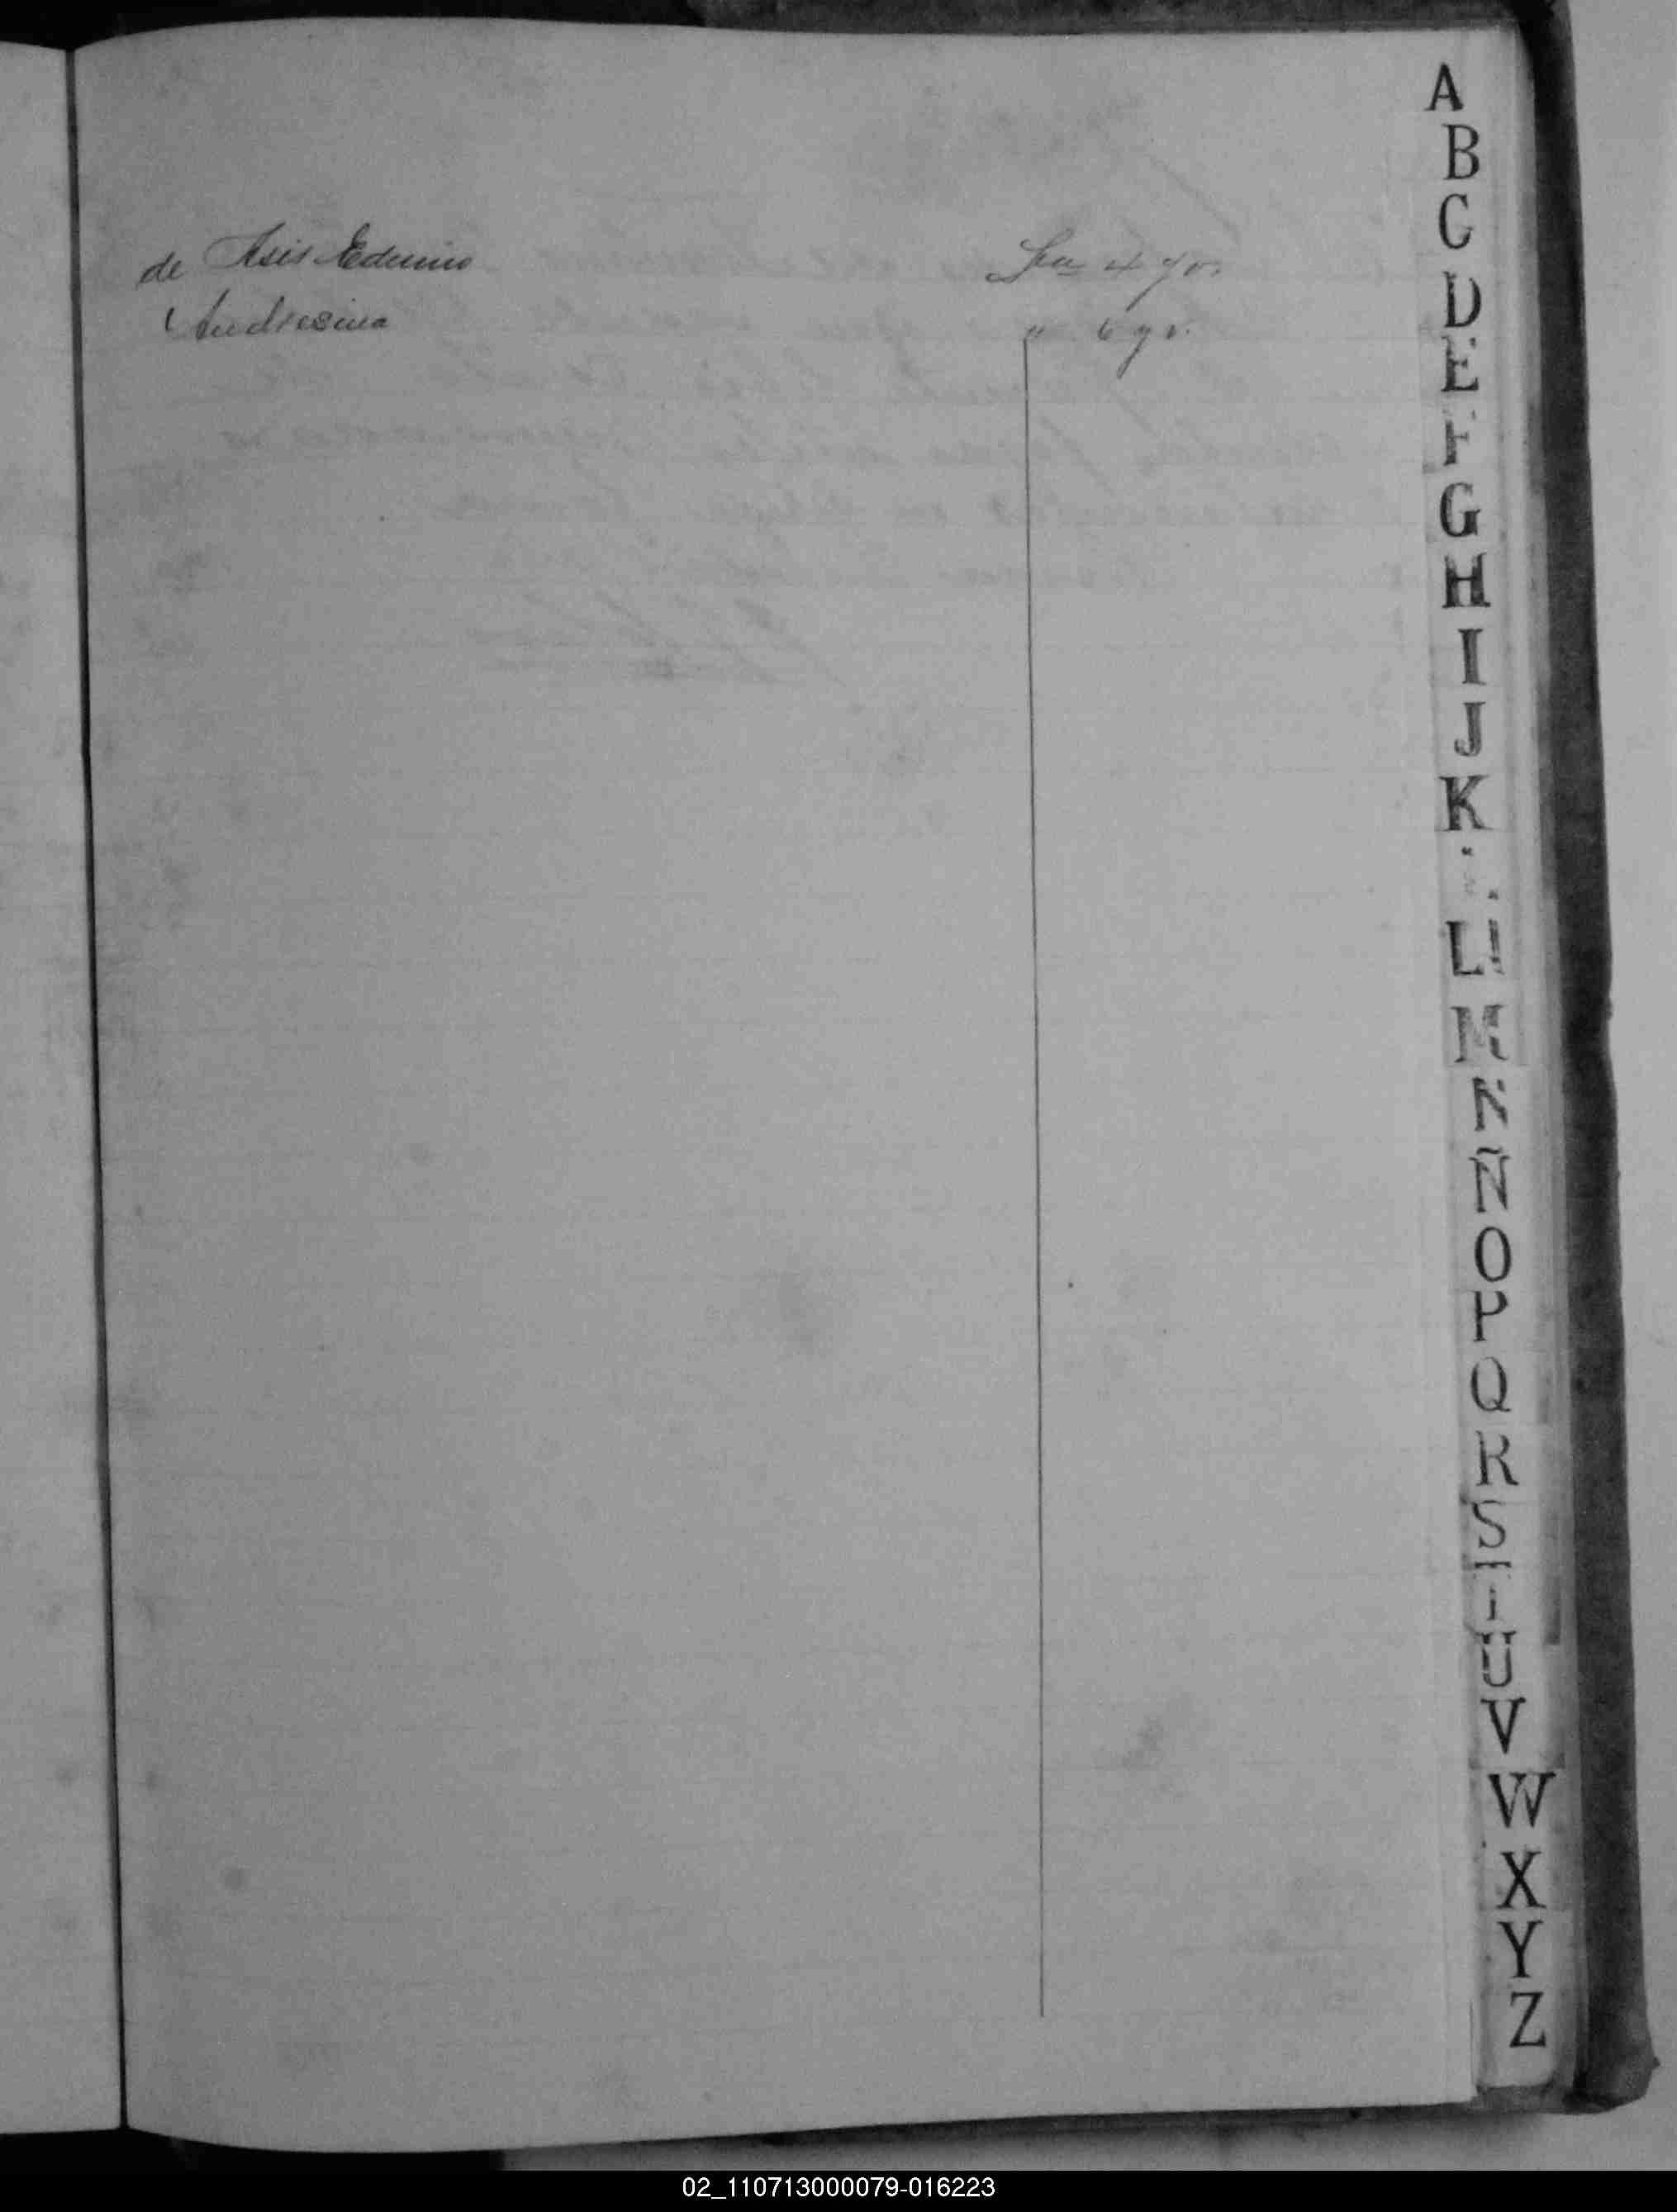 de Asis Edumio
Andresina
4 gr.
" 6 gr.
A
B
C
D
E
F
G
H
I
J
K
L
M
N
Ñ
O
P
Q
R
S
T
U
V
W
X
Y
Z
02_110713000079-016223